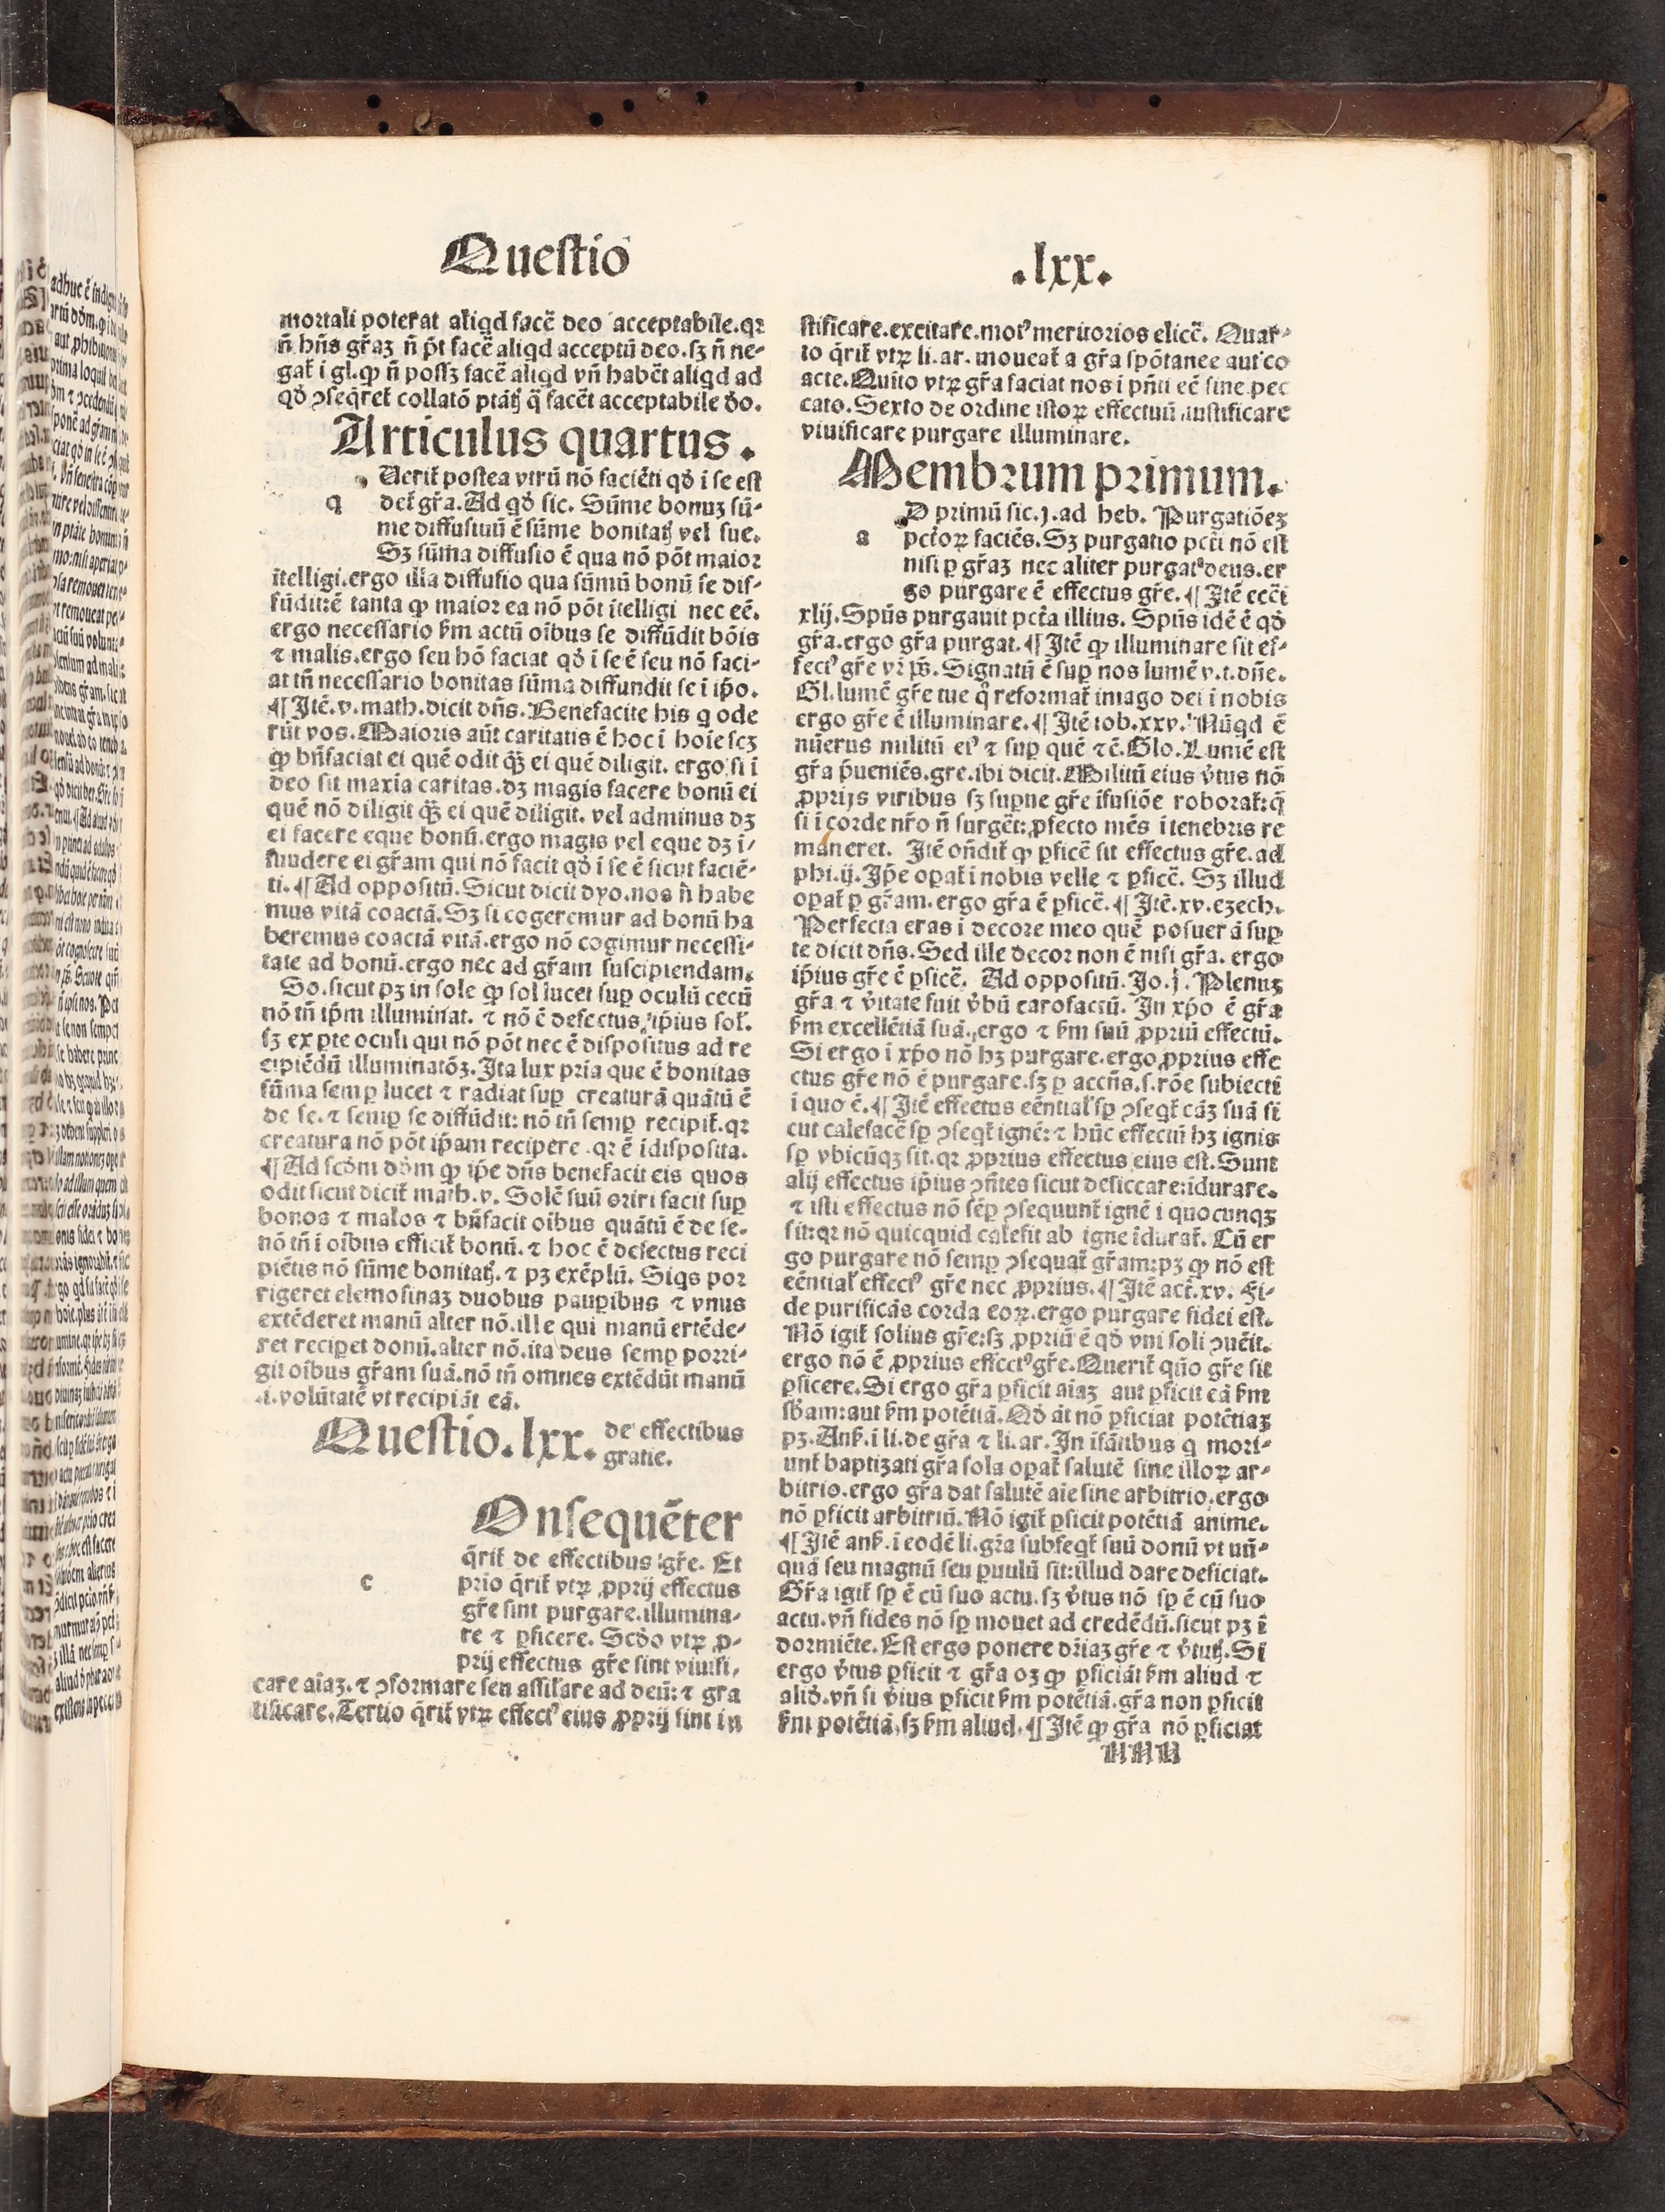 Questio
.lxx.
mortali poterat aliqd facē deo acceptabile.qꝛ
n̄ hn̄s gr̄aꝫ n̄ p̄t facē aliqd acceptū deo.sꝫ n̄ ne-
gat̄ i gl.ꝙ n̄ possꝫ facē aliqd vn̄ habēt aliqd ad
qđ ↄseq̄ret̄ collatō ptāt̄ꝭ q̄ facēt acceptabile đo.
Articulus quartus.
Uerit̄ postea vtrū nō faciēti qđ i se est
q det̄ gr̄a.Ad qđ sic. Sūme bonuꝫ sū-
me diffusiuū ē sūme bonitat̄ꝭ vel sue.
Sꝫ sūma diffusio ē qua nō pōt maior
itelligi.ergo illa diffusio qua sūmū bonū se dif-
fūdit:ē tanta ꝙ maior ea nō pōt itelligi nec eē.
ergo necessario ẜm actū oībus se diffūdit bōis
⁊ malis.ergo seu hō faciat qđ i se ē seu nō faci-
at tn̄ necessario bonitas sūma diffundit se i ip̄o.
¶ Itē.v.math.dicit dn̄s. Benefacite his q ode
rūt vos. Maioris aūt caritatis ē hoc i hoīe scꝫ
ꝙ bn̄faciat ei quē odit q̄ꝫ ei quē diligit. ergo si i
deo sit maxīa caritas.dꝫ magis facere bonū ei
quē nō diligit q̄ꝫ ei quē diligit. vel adminus dꝫ
ei facere eque bonū.ergo magis vel eque dꝫ i-
fundere ei gr̄am qui nō facit qđ i se ē sicut faciē-
ti.¶ Ad oppositū. Sicut dicit dyo.nos n̄ habe
mus vitā coactā. Sꝫ si cogeremur ad bonū ha
beremus coactā vitā.ergo nō cogimur necessi-
tate ad bonū.ergo nec ad gr̄am suscipiendam.
So.sicut pꝫ in sole ꝙ sol lucet suꝑ oculū cecū
nō tn̄ ip̄m illuminat. ⁊ nō ē defectus ip̄ius sol̄.
sꝫ ex pte oculi qui nō pōt nec ē dispositus ad re
cipiēdū illuminatōꝫ. Ita lux pria que ē bonitas
sūma semꝑ lucet ⁊ radiat suꝑ creaturā quātū ē
de se.⁊ semꝑ se diffūdit: nō tn̄ semꝑ recipit̄.qꝛ
creatura nō pōt ip̄am recipere .qꝛ ē idisposita.
¶ Ad scđm dōm ꝙ ip̄e dn̄s benefacit eis quos
odit sicut dicit̄ math.v. Solē suū oriri facit suꝑ
bonos ⁊ malos ⁊ bn̄facit oibus quātū ē de se.
nō tn̄ i oībus efficit̄ bonū. ⁊ hoc ē defectus reci
piētis nō sūme bonitat̄ꝭ. ⁊ pꝫ exēplū. Siqs por
rigeret elemosinaꝫ duobus pauꝑibus ⁊ vnus
extēderet manū alter nō.ille qui manū extēde-
ret reciꝑet donū.alter nō.ita deus semꝑ porri-
git oībus gr̄am suā.nō tn̄ omnes extēdūt manū
.i.volūtatē vt recipiāt eā.
Questio.lxx. de effectibus
gratie.
Onsequēter
q̄rit̄ de effectibus gr̄e. Et
c prio q̄rit̄ vtꝝ ꝓprij effectus
gr̄e sint purgare.illumina-
re ⁊ ꝑficere. Scđo vtꝝ ꝓ-
prij effectus gr̄e sint viuifi,
care aīaꝫ.⁊ ↄformare seu assil̄are ad deū:⁊ gra
tificare.Tertio q̄rit̄ vtꝝ effectꝰ eius ꝓprij sint iu
stificare.excitare.motꝰ meritorios elicē. Quar-
to q̄rit̄ vtꝝ li.ar. moueat̄ a gr̄a spōtanee aut co
acte.Quito vtꝝ gr̄a faciat nos i pn̄ti eē sine pec
cato. Sexto de ordine istoꝝ effectuū iustificare
viuificare purgare illuminare.
Membrum primum.
D primū sic.j.ad heb. Purgatiōeꝫ
a pctoꝝ faciēs. Sꝫ purgatio pcti nō est
nisi ꝑ gr̄aꝫ nec aliter purgatꝰ deus.er
go purgare ē effectus gr̄e.¶ Itē ecci
xlij. Spūs purgauit pctā illius. Spūs idē ē qđ
gr̄a.ergo gr̄a purgat.¶ Itē ꝙ illuminare sit ef-
fectꝰ gr̄e vr̄ ps̄. Signatū ē suꝑ nos lumē v.t.dn̄e.
Gl.lumē gr̄e tue q̄ reformat̄ imago dei i nobis
ergo gr̄e ē illuminare.¶ Itē iob.xxv. Nūqd ē
nūerus militū eiꝰ ⁊ suꝑ quē ⁊ē. Glo. Lumē est
gr̄a p̄ueniēs.gre.ibi dicit. Militū eius v̄tus nō
ꝓprijs viribus sꝫ suꝑne gr̄e ifusiōe roborat̄:q̄
si i corde nr̄o n̄ surgēt:ꝓfecto mēs i tenebris re
maneret. Itē on̄dit̄ ꝙ ꝑficē sit effectus gr̄e.ad
phi.ij. Ip̄e oꝑat̄ i nobis velle ⁊ ꝑficē. Sꝫ illud
oꝑat̄ ꝑ gr̄am.ergo gr̄a ē ꝑficē.¶ Itē.xv.ezech.
Perfecta eras i decore meo quē posuerā suꝑ
te dicit dn̄s. Sed ille decor non ē nisi gr̄a. ergo
ip̄ius gr̄e ē ꝑficē. Ad oppositū. Jo.j. Plenuꝫ
gr̄a ⁊ v̄itate fuit v̄bū carofactū. In xp̄o ē gr̄a
ẜm excellētiā suā.ergo ⁊ ẜm suū ꝓpriū effectū.
Si ergo i xp̄o nō hꝫ purgare.ergo ꝓprius effe
ctus gr̄e nō ē purgare.sꝫ ꝑ accn̄s.s.rōe subiecti
i quo ē.¶ Itē effectus eēntial̄ sꝑ ↄseqt̄ cāꝫ suā si
cut calefacē sꝑ ↄseqt̄ ignē:⁊ hūc effectū hꝫ ignis
sꝑ vbicūqꝫ sit.qꝛ ꝓprius effectus eius est. Sunt
alij effectus ip̄ius ↄn̄tes sicut desiccare:idurare.
⁊ isti effectus nō sēꝑ ↄsequunt̄ ignē i quocunqꝫ
sit:qꝛ nō quicquid calefit ab igne idurat̄. Cū er
go purgare nō semꝑ ↄsequat̄ gr̄am:pꝫ ꝙ nō est
eēntial̄ effectꝰ gr̄e nec ꝓprius.¶ Itē act̄.xv. Fi-
de purificās corda eoꝝ.ergo purgare fidei est.
Nō igit̄ solius gr̄e:sꝫ ꝓpriū ē qđ vni soli ↄuēit.
ergo nō ē ꝓprius effectꝰ gr̄e.Querit̄ qn̄o gr̄e sit
ꝑficere. Si ergo gr̄a ꝑficit aīaꝫ aut ꝑficit eā ẜm
sb̄am:aut ẜm potētiā. Qđ āt nō ꝑficiat potētiaꝫ
pꝫ.Anẜ.i li.de gr̄a ⁊ li.ar. In ifātibus q mori-
unt̄ baptizati gr̄a sola oꝑat̄ salutē sine illoꝝ ar-
bitrio.ergo gr̄a dat salutē aīe sine arbitrio.ergo
nō ꝑficit arbitriū. Nō igit̄ ꝑficit potētiā anime.
¶ Itē anẜ.i eodē li.gr̄a subseqt̄ suū donū vt nū-
quā seu magnū seu ꝑuulū sit:illud dare deficiat.
Gr̄a igit̄ sꝑ ē cū suo actu.sꝫ v̄tus nō sꝑ ē cū suo
actu.vn̄ fides nō sꝑ mouet ad credēdū.sicut pꝫ i
dormiēte. Est ergo ponere dr̄iaꝫ gr̄e ⁊ v̄tut̄ꝭ. Si
ergo v̄tus ꝑficit ⁊ gr̄a oꝫ ꝙ ꝑficiāt ẜm aliud ⁊
aliđ.vn̄ si v̄tus ꝑficit ẜm potētiā.gr̄a non ꝑficit
ẜm potētiā.sꝫ ẜm aliud.¶ Itē ꝙ gr̄a nō ꝑficiat
NNN